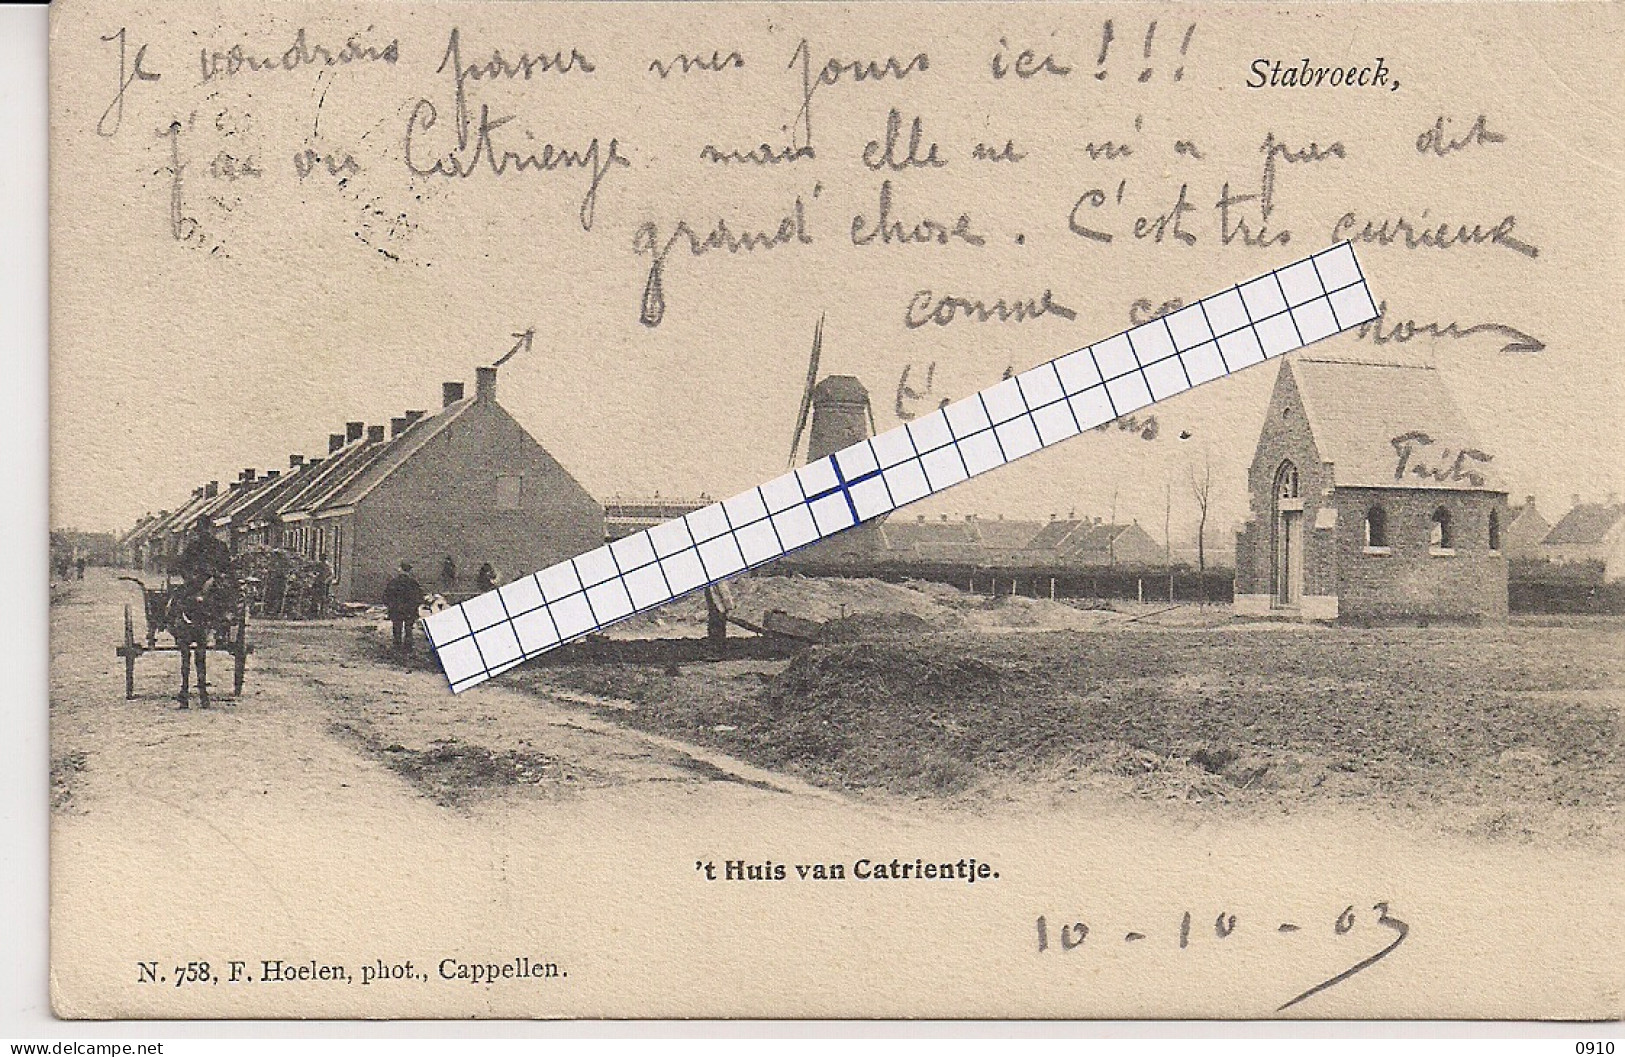 Je voudrais passer mes jours ici!!!
Stabroeck,
J'ai vu Catrientje mais elle ne m'a pas dit
grand' chose. C'est très curieux
comme nous
Frits
't Huis van Catrientje.
10-10-03
N. 758, F. Hoelen, phot., Cappellen.
delcampe.net
0910